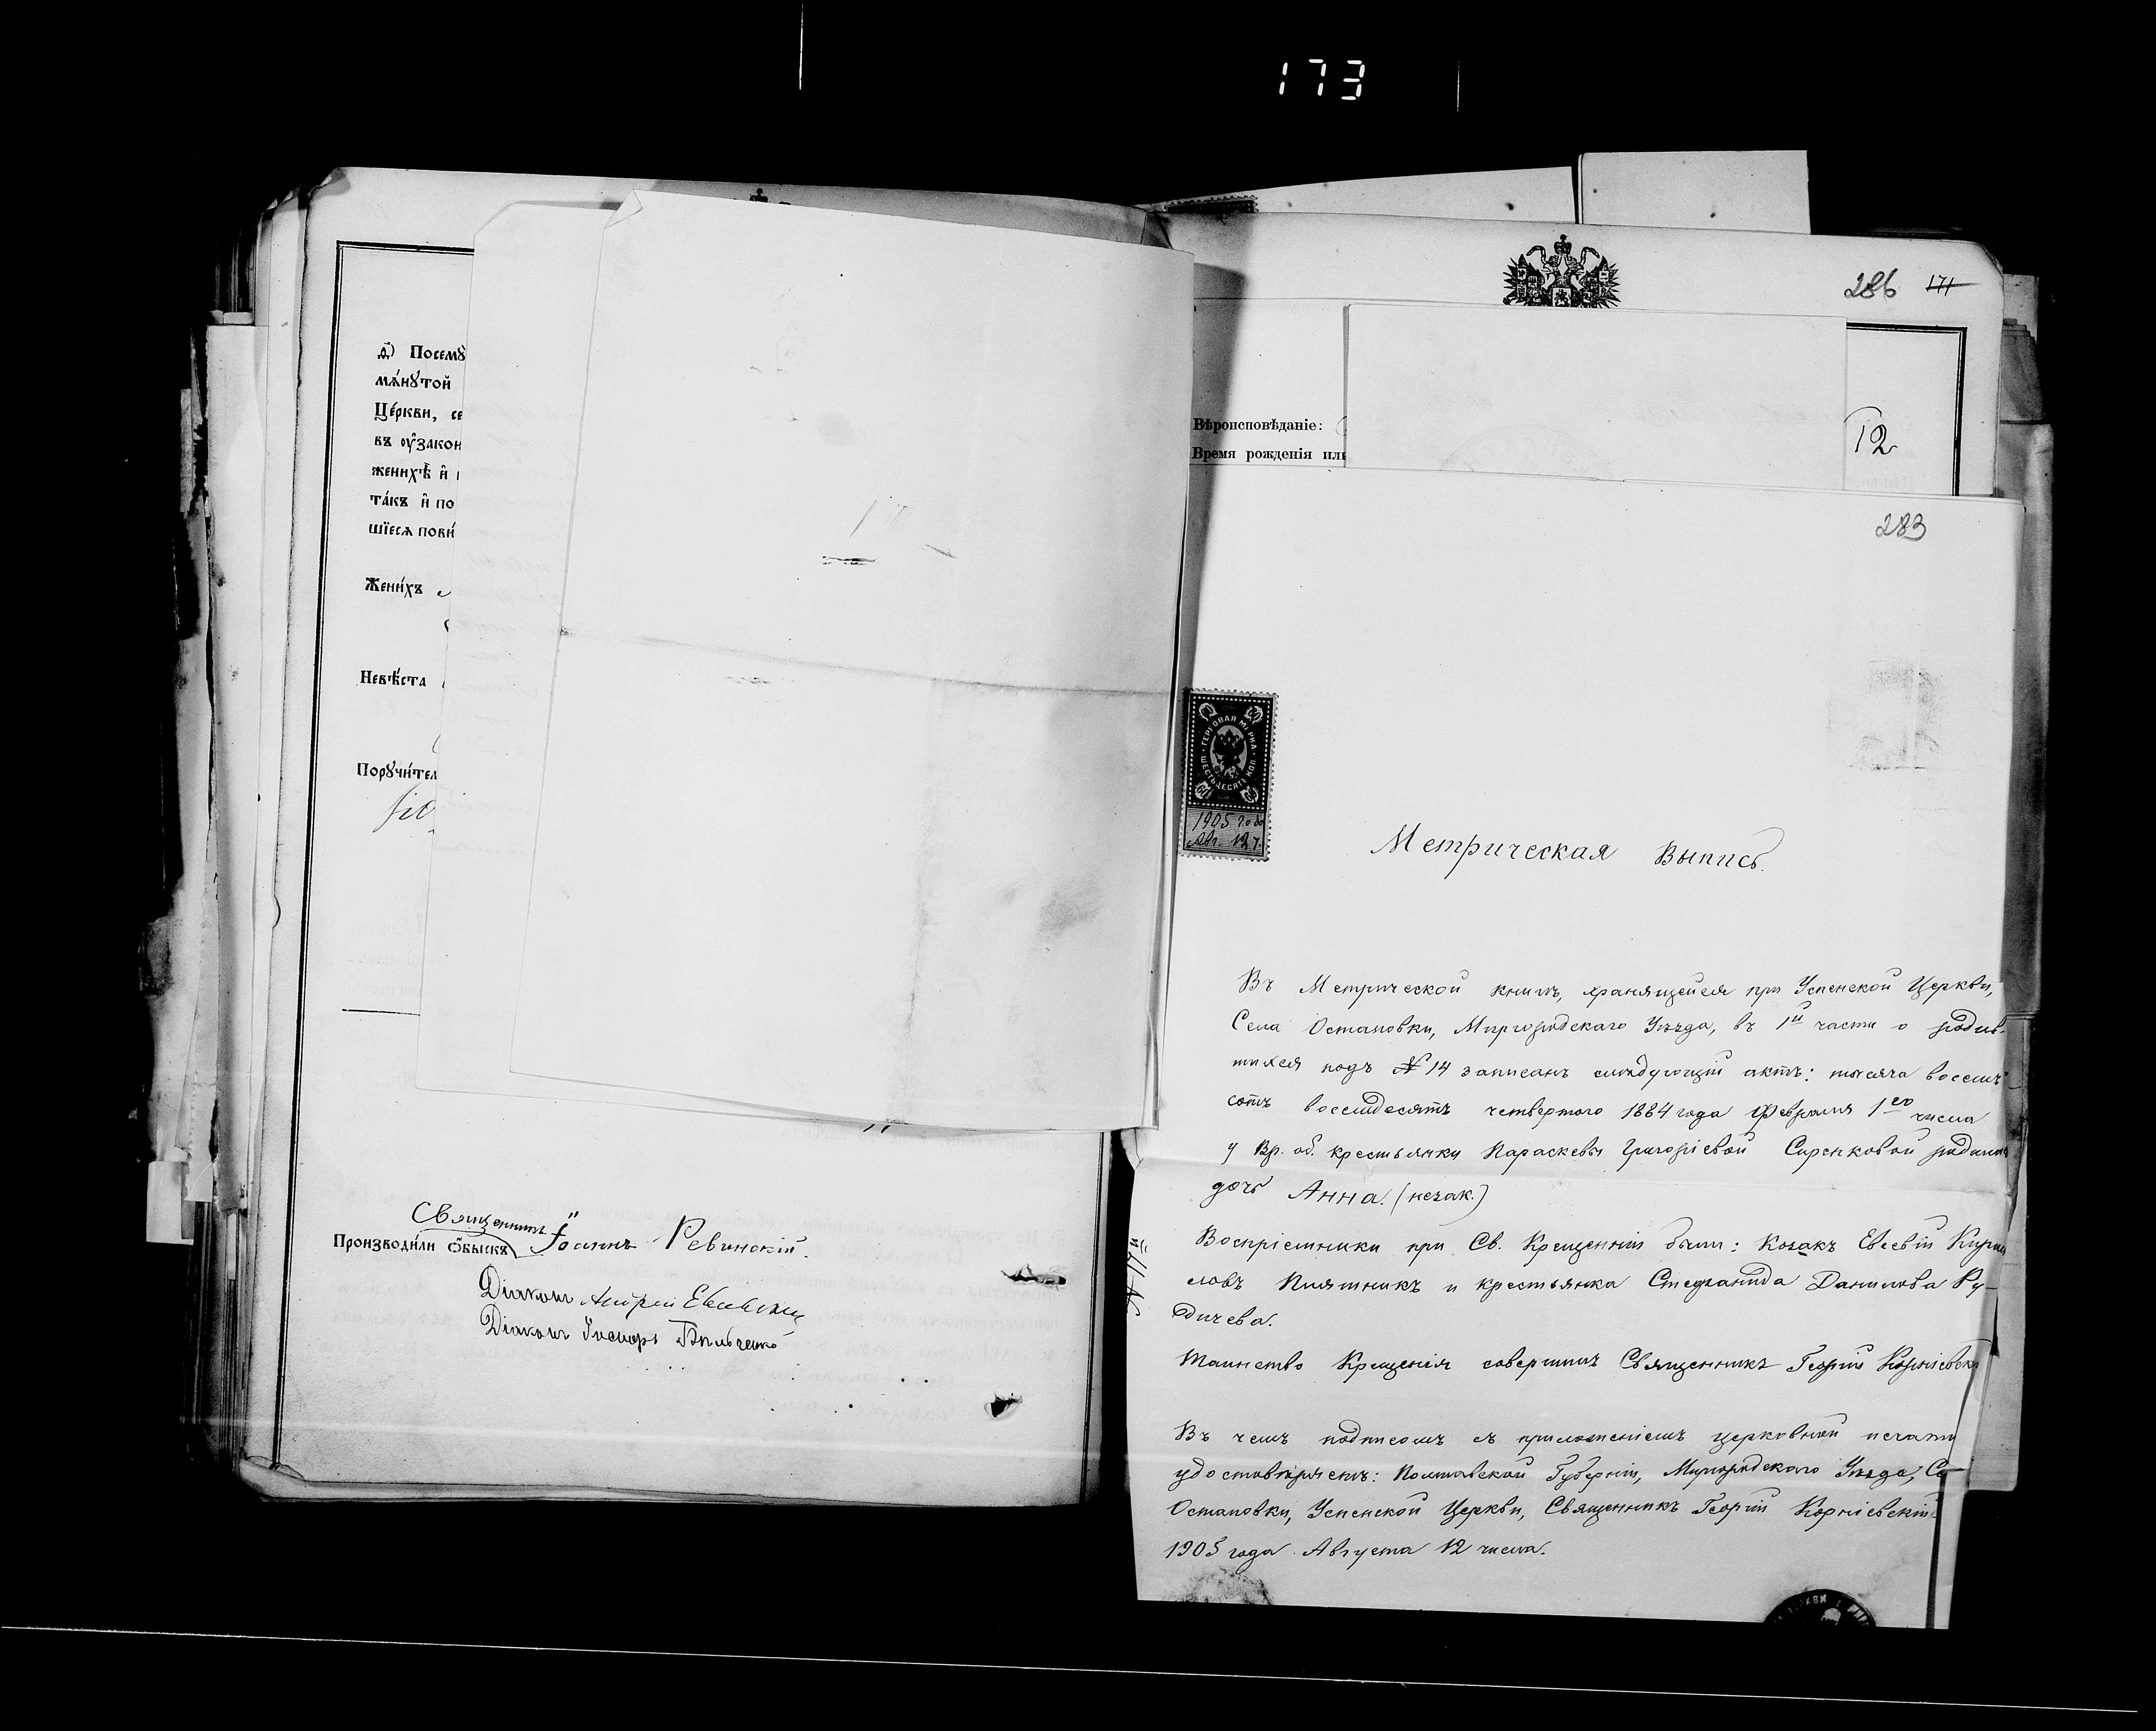 173
д҃) Посемꙋ
мѧ́нꙋтой
Це́ркви, се
въ оу҆зако́н
женихѣ̀ и҆
та́къ и҆ по
шїесѧ пови́
Жени́хъ
Невѣ́ста
Порꙋчи́тел
Священникъ Іоаннъ Ревинскій.
Производи́ли ѻ҆́быскъ
Діаконъ Андрей
Діаконъ
286 171
Вѣроисповѣданіе:
Время рожденія или
12
283
ГЕРБОВАЯ МАРКА
ШЕСТЬДЕСЯТЪ КОП.
1905 года
Авг. 12 ч.
Метрическая Выпись.
Въ Метрической книгѣ, хранящейся при Успенской Церкви,
Села Остановки, Миргородскаго Уѣзда, въ 1й части о родив-
шихся подъ № 14 записанъ слѣдующій актъ: тысяча восемь
сотъ восемдесятъ четвертого 1884 года Февраля 1го числа
у Вр. об. крестьянки Параскевы Григоріевой Сиренковой родилась
дочь Анна. (незак.)
Воспріемники при Св. Крещеніи были: Козакъ Евсевій Кирил
ловъ Пилтникъ и крестьянка Стефанида Данилова Ру-
дичева.
Таинство Крещенія совершилъ Священникъ Георгій Корніевскій
Въ чемъ подписомъ съ приложеніемъ церковной печати
удостовѣряетъ: Полтавской Губерніи, Миргородскаго Уѣзда, Се
Остановки, Успенской Церкви, Священникъ Георгій Корніевскій
1905 года Августа 12 числа.